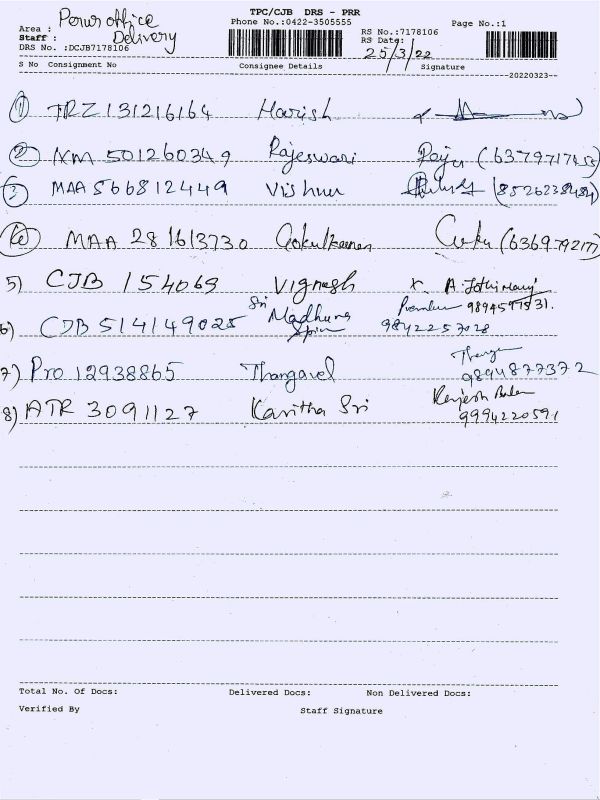 TPC/CJB DRS - PRR
Phone No.:0422-3505555
Page No.:1
Area : office
Staff : Delivery
DRS No. :DCJB7178106
RS No.:7178106
RS Date: 25/3/22
S No Consignment No Consignee Details Signature
--20220323--
① TRZ131216164 Harish
② NM 501260349 Rajeswari Raju
③ MAA 566812449 Vishnu
④ MAA 281613730
5) CJB 154069 Vignesh x. A.
6) CJB 514149025 Sri Madhura 9842257028
7) Pro 12938865 Thangavel 9894877372
8) ATR 3091127 Kavitha Sri 9994220591
Total No. Of Docs: Delivered Docs: Non Delivered Docs:
Verified By Staff Signature